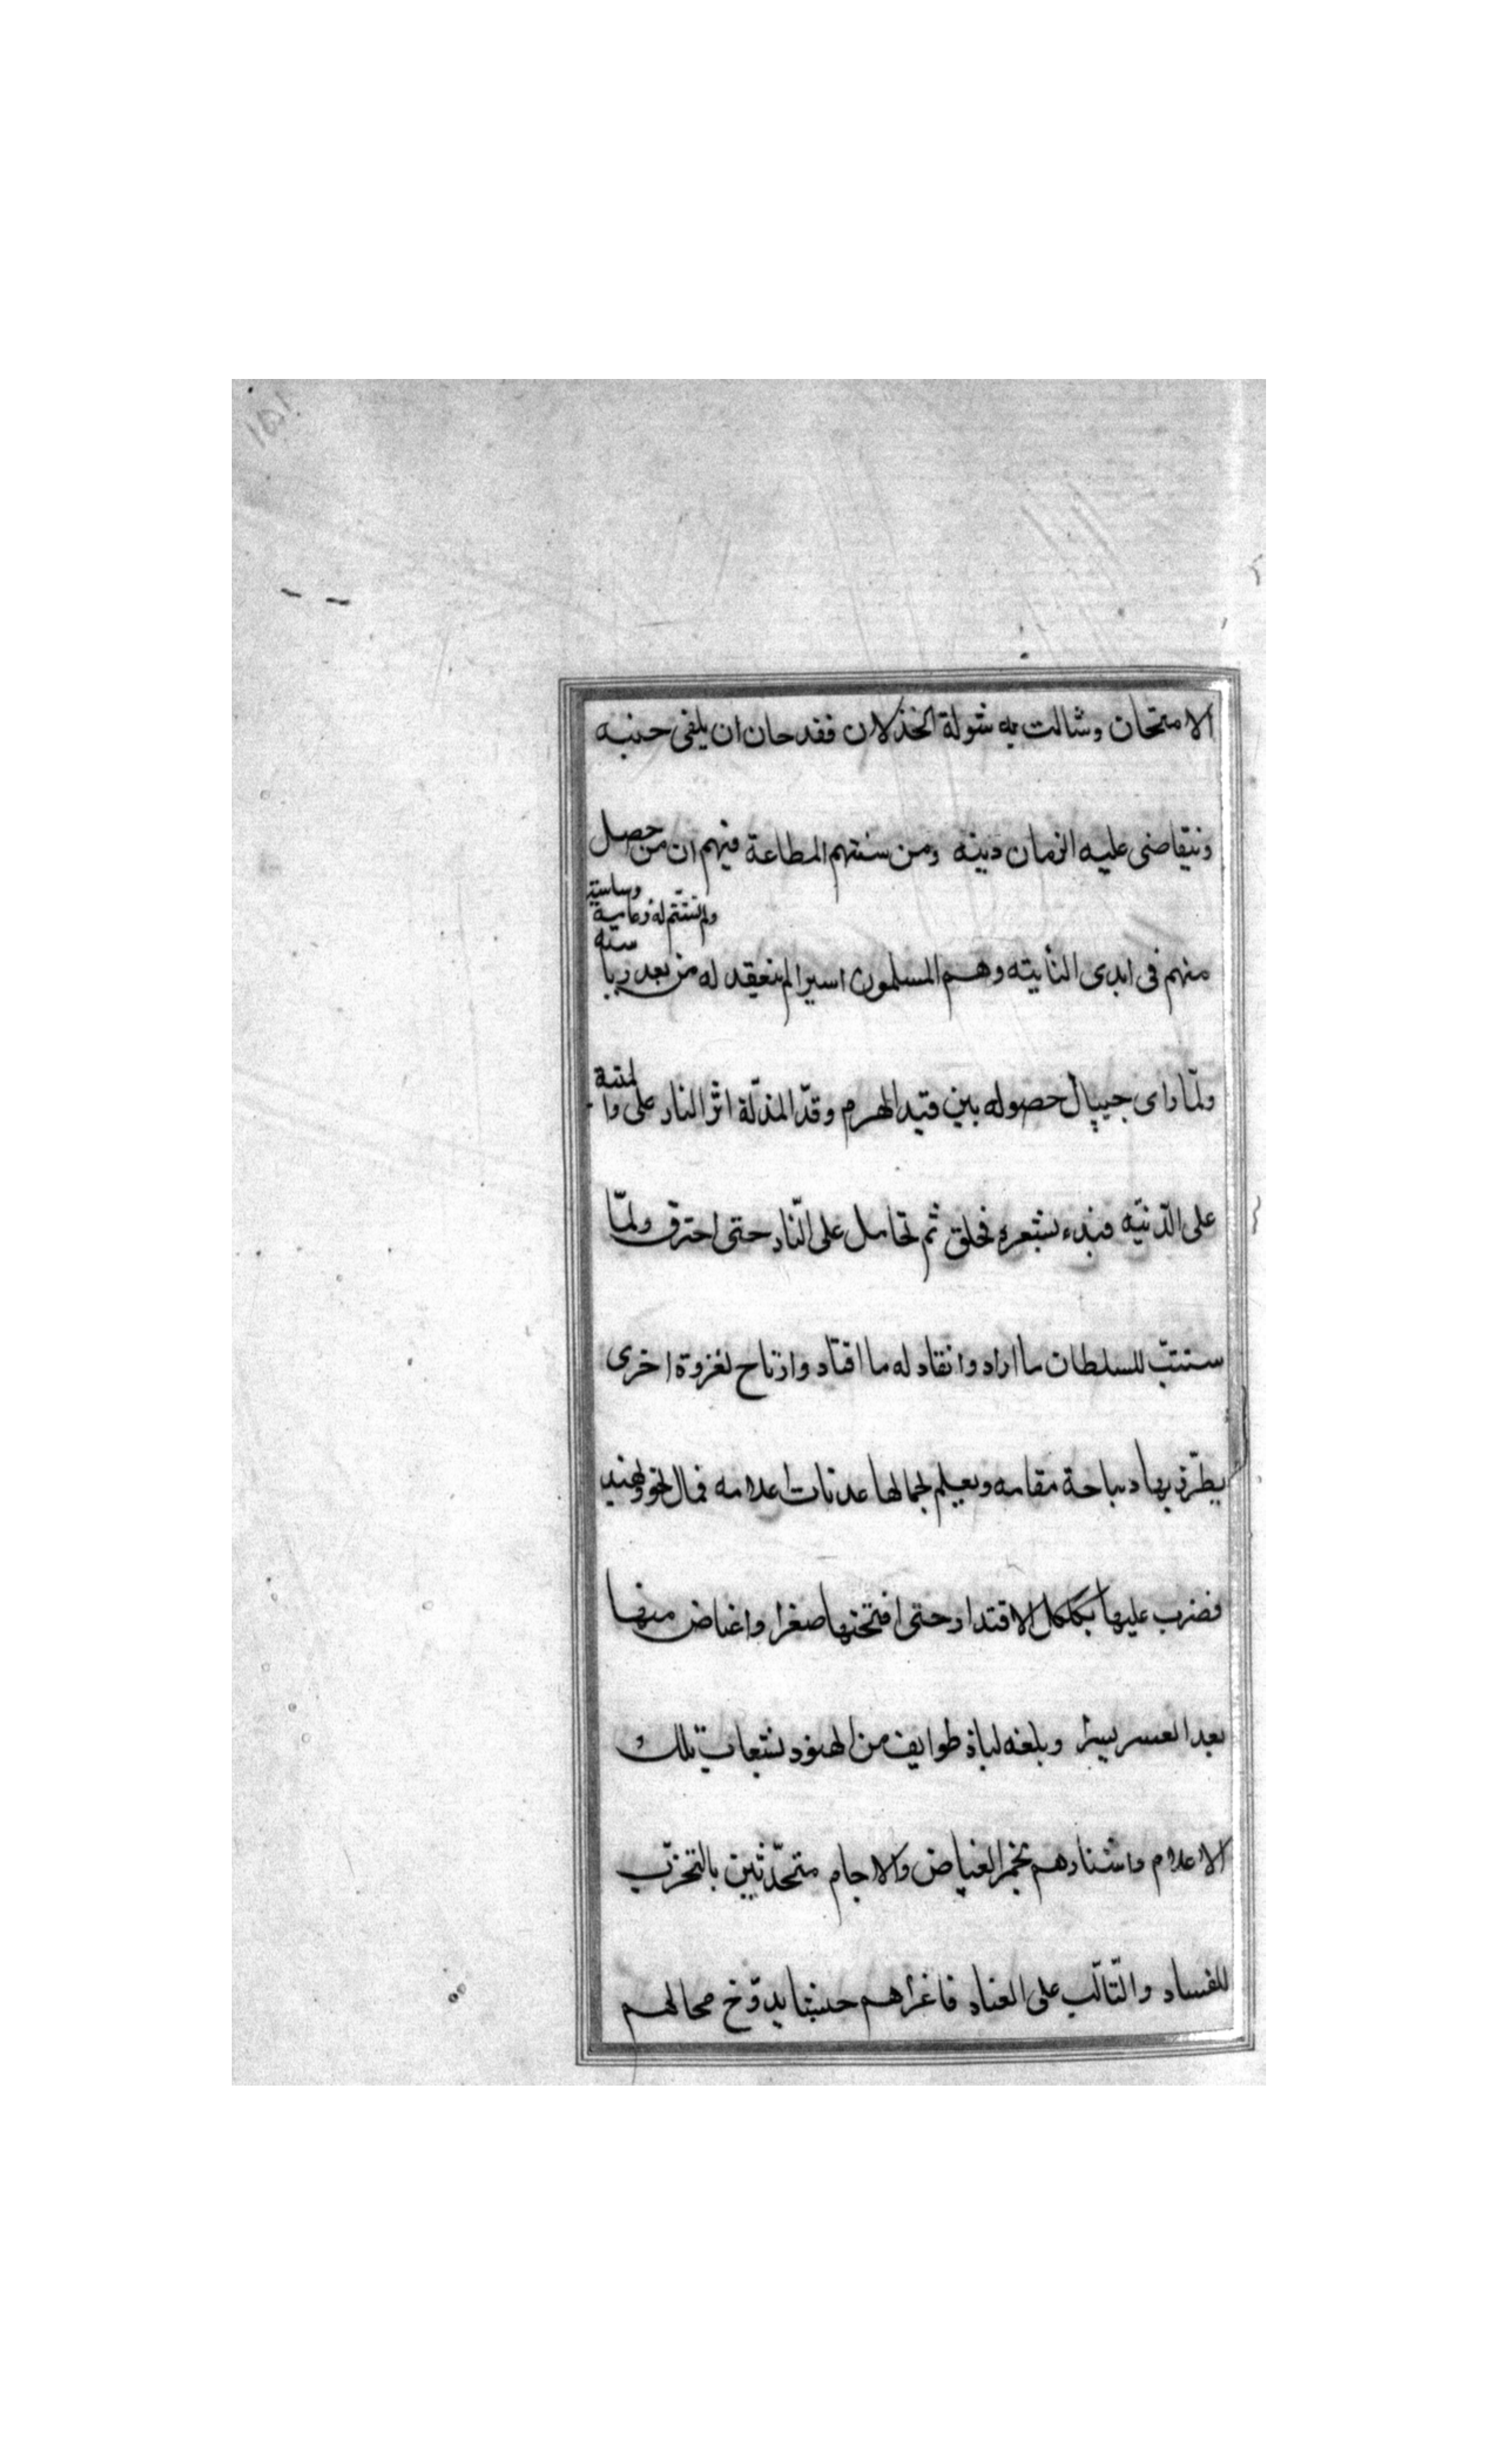 الامتحان وشالت به شولة الخذلان فقد حان ان يلقى حنبه
ونيقاضى عليه الزمان دينه ومن سنتهم المطاعة فيهم ان من حصل
منهم فى ايدى النأييته وهم المسلمون اسيرا لم ينعقد له من بعد ريا
سته وسياسته ولم تستتم له زعامة
ولمّا راى جيپال حصوله بين قيد الهرم وقدّ المذلّة اثر النار على وا
لمنية
على الدّنيّه فبدء بشعره فحلق ثم تحامل على النّار حتى احترق ولمّا
ستتبّ للسلطان ما اراد وانقاد له ما اقتاد وارتاح لغزوة اخرى
يطرّز بها ديباجة مقامه ويعلم بجمالها عذبات اعلامه فمال نحو ويهند
فضرب عليها بكلكل الاقتدار حتى افتتحها صغرا واغتاض منها
بعد العسر يسرا وبلغه لياذ طوايف من الهنود بشعاب تلك و
الاعلام واستنادهم بخمر الغياض والاجام متحدّثين بالتحزّب
للفساد والتّالّب على العناد فاغزاهم جيشا يدوّخ محالهم